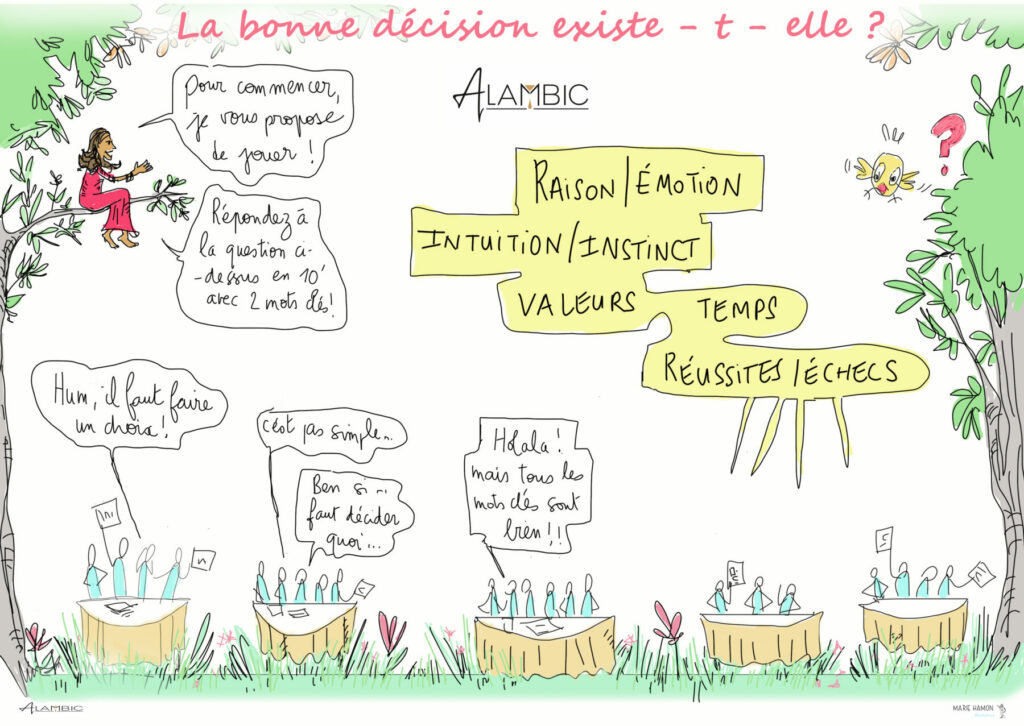 La bonne décision existe - t - elle ?
Pour commencer,
je vous propose
de jouer !
ALAMBIC
RAISON/ÉMOTION
INTUITION/INSTINCT
VALEURS
TEMPS
RÉUSSITES/ÉCHECS
?
Répondez à
la question ci-
-dessus en 10'
avec 2 mots clés!
Hum, il faut faire
un choix!
c'est pas simple...
Ben si...
faut décider
quoi...
Holala !
mais tous les
mots clés sont
bien!!
ALAMBIC
MARIE HAMON